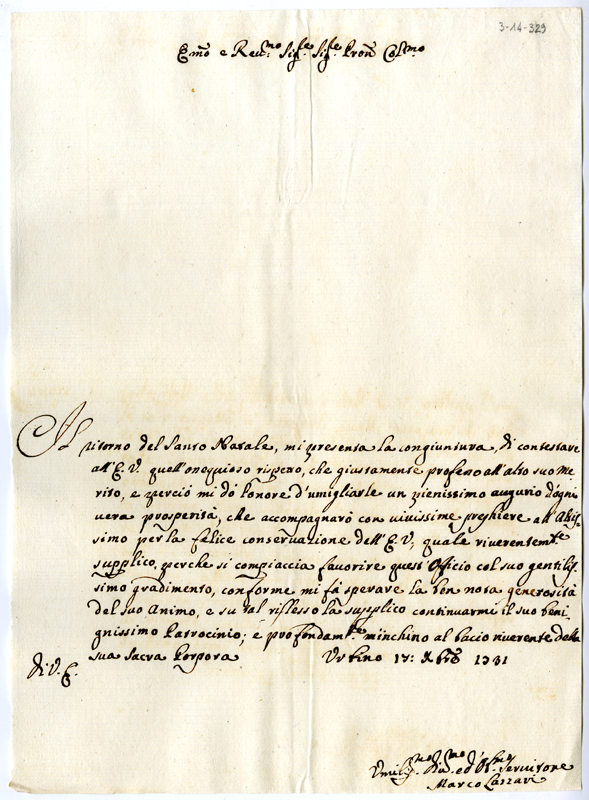 3-14-329
Emo e Reu.mo Sig.re Sig.re Pron Col.mo
Il ritorno del Santo Natale, mi presenta la congiuntura, di contestare
all' E. V. quell' onequioso rispetto, che giustamente professo all' alto suo Me
rito, e perciò mi dò l'onore d'umigliarle un pienissimo augurio d'ogni
uera prosperità, che accompagnarò con uiuissime preghiere all' Altis-
simo per la felice conseruazione dell' E. V., quale riverentem.te
supplico, perche si compiaccia fauorire quest' Officio col suo gentilis-
simo gradimento, conforme mi fà sperare la ben nota generosità
del suo Animo, e su tal riflesso la supplico continuarmi il suo beni
gnissimo Patrocinio; e profondam.te m'inchino al bacio riuerente della
sua Sacra Porpora Urbino 17: Xbre 1731
Di V. E.
Vmiliss.mo Diu.mo ed Ob.mo Seruitore
Marco Lazzari